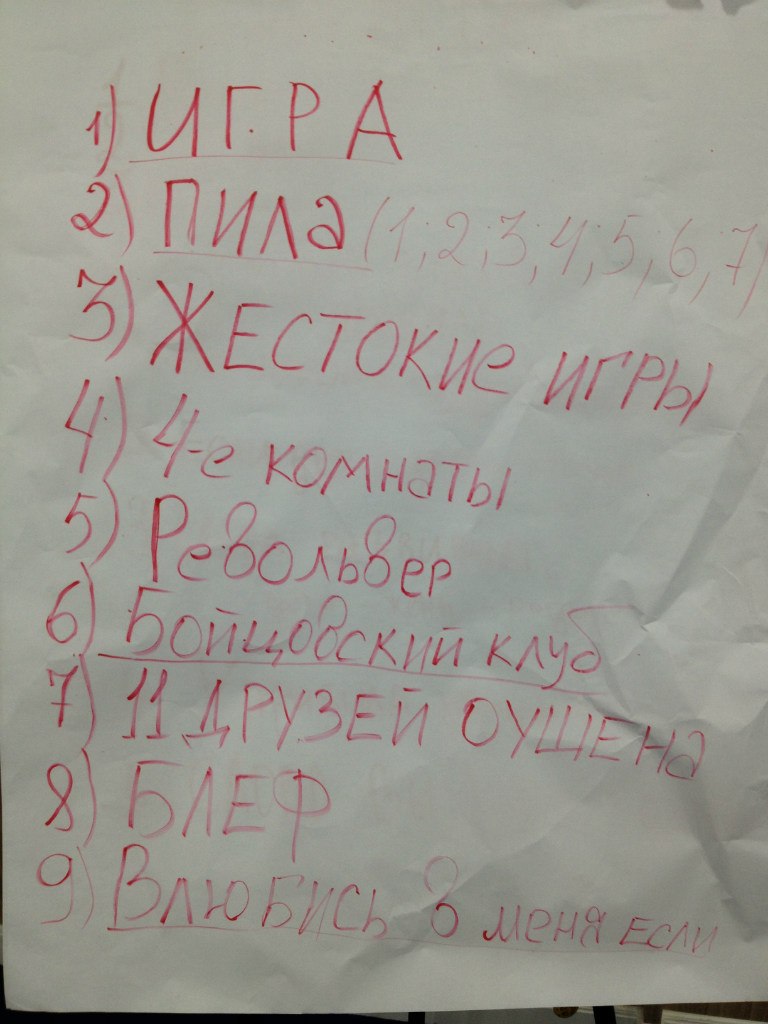 1) ИГРА
2) ПИЛа (1,2,3,4,5,6,7)
3) ЖЕСТОКИе игры
4) 4-е комнаты
5) Револьвер
6) Бойцовский клуб
7) 11 ДРУЗЕЙ ОУШЕНа
8) БЛЕФ
9) Влюбись в меня если